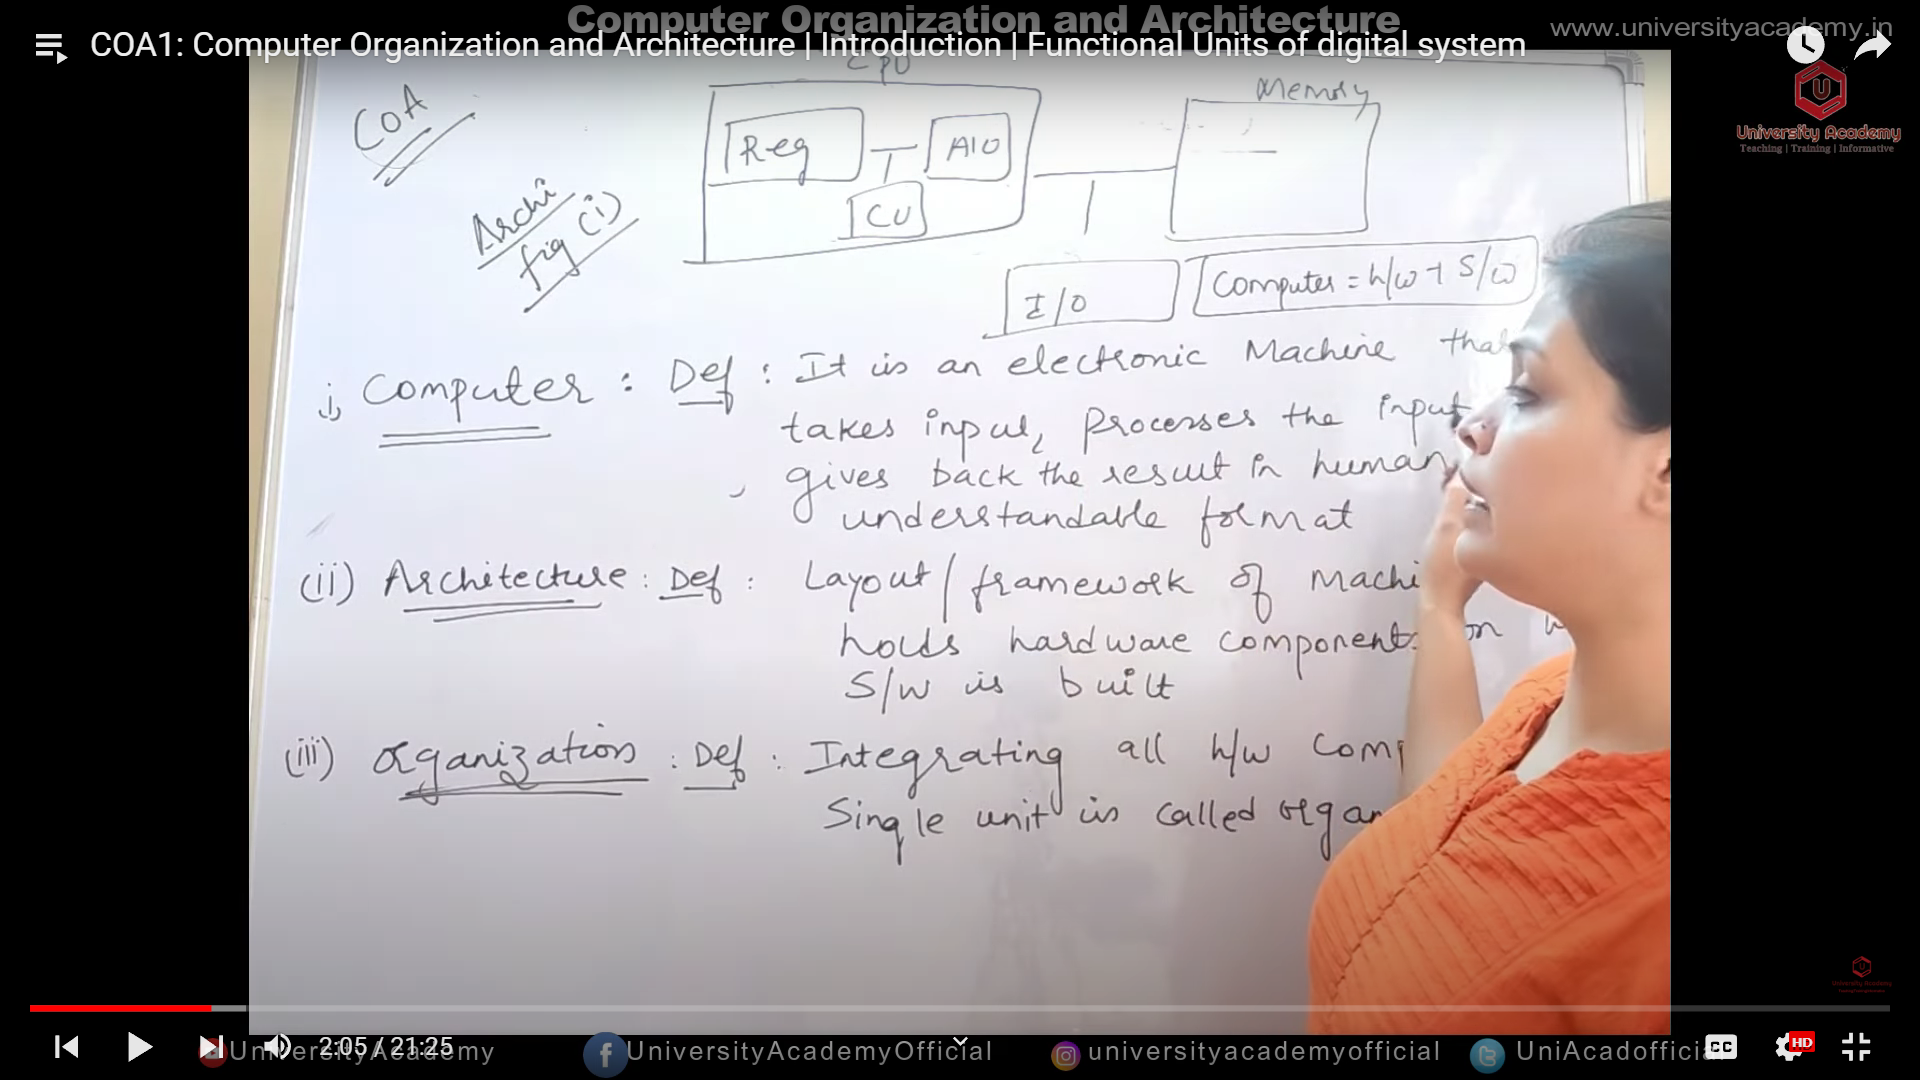 Computer Organization and Architecture
www.universityacademy.in
COA1: Computer Organization and Architecture | Introduction | Functional Units of digital system
University Academy
Teaching | Training | Informative
COA
Archi
fig (i)
CPU
Reg
ALU
CU
Memory
I/O
Computer = h/w + S/w
i, Computer : Def : It is an electronic Machine that
takes input, Processes the input
, gives back the result in human
understandable format
(ii) Architecture : Def : Layout/framework of Machi
holds hardware components on
S/W is built
(iii) Organization : Def : Integrating all h/w Comp
Single unit is called organ
University Academy
2:05 / 21:25
UniversityAcademy
UniversityAcademyOfficial
universityacademyofficial
UniAcadofficial
CC
HD